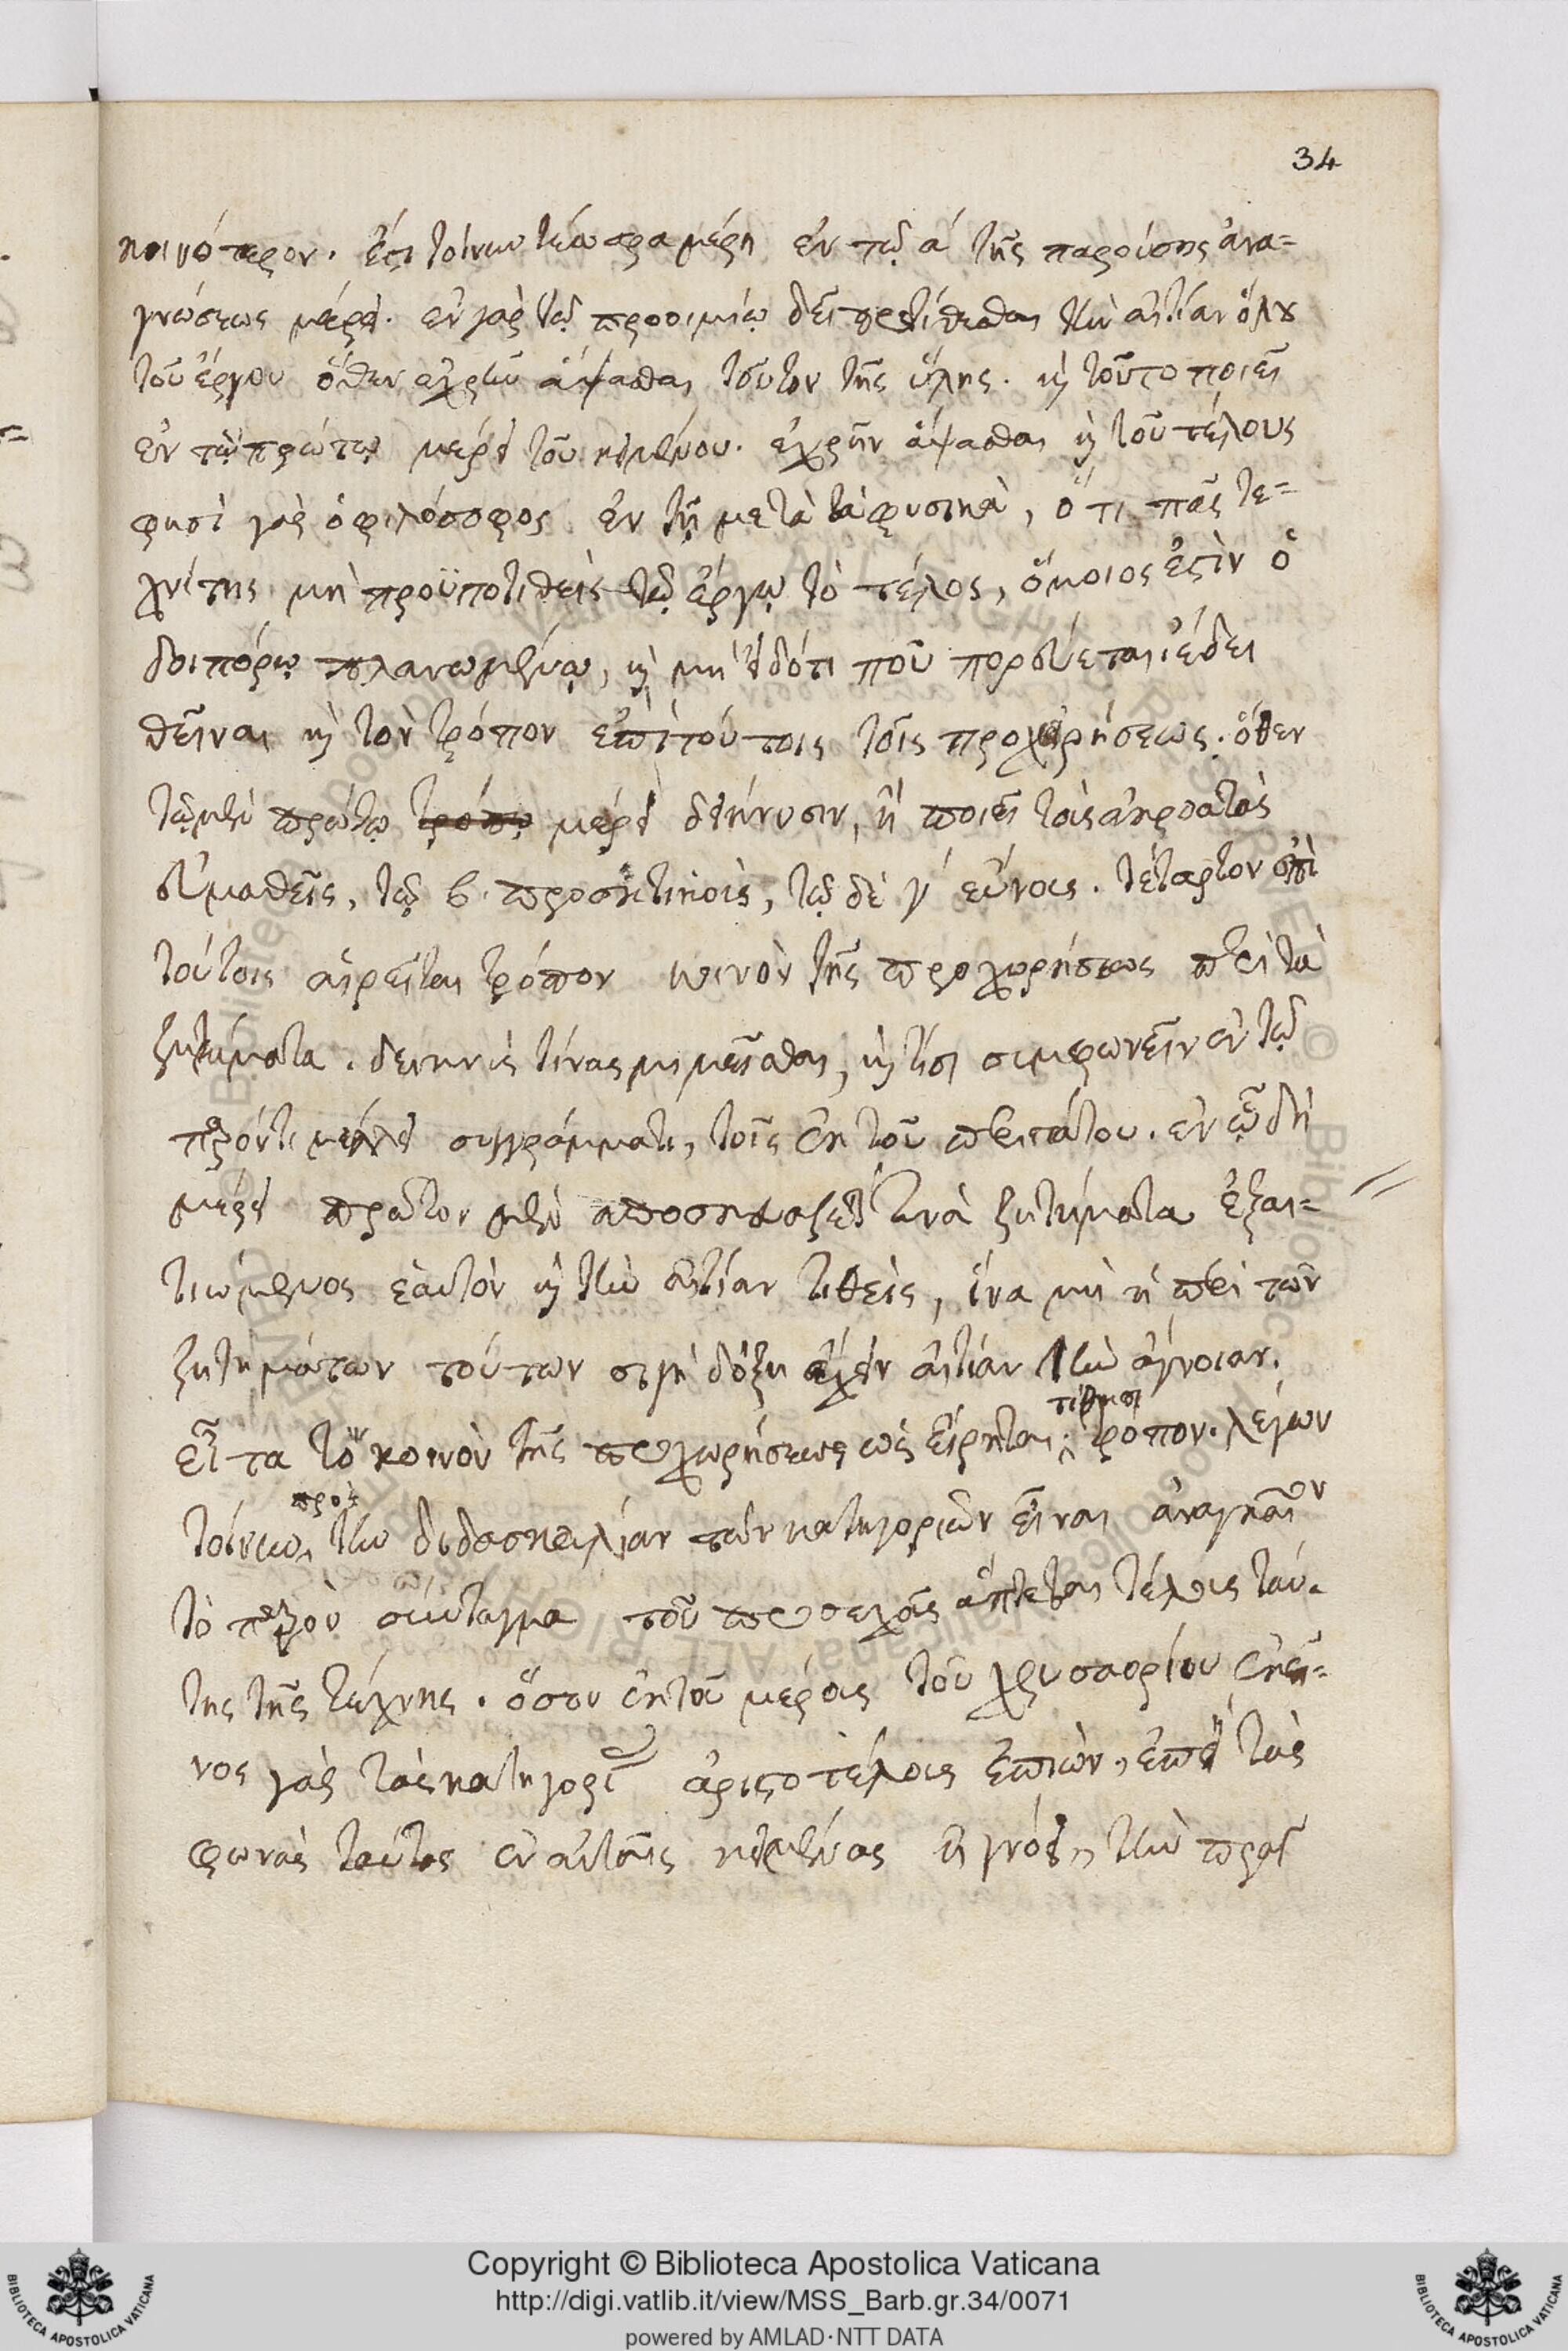 34
κοινότερον. ἔστι τοίνυν τέσσαρα μέρη ἐν τῷ ά τῆς παρούσης ἀνα=
γνώσεως μέρει. ἐν γὰρ τῷ προοιμίῳ δεῖ προτίθεσθαι τὴν αἰτίαν ὅλου
τοῦ ἔργου ὅθεν ἐχρῆν ἅψασθαι τοῦτον τῆς ὕλης. καὶ τοῦτο ποιεῖ
ἐν τῷ πρώτῳ μέρει τοῦ κειμένου. ἐχρῆν ἅψασθαι καὶ τοῦ τέλους
φησὶ γὰρ ὁ φιλόσοφος ἐν τῇ μετὰ τὰ φυσικὰ, ὅτι πᾶς τε=
χνίτης μὴ προϋποτιθεὶς τῷ ἔργῳ τὸ τέλος, ὅμοιος ἐστὶν ὁ
δοιπόρῳ πλανωμένῳ, καὶ μὴ εἰδότι ποῦ πορεύεται. ἔδει
θεῖναι καὶ τὸν τρόπον ἐπὶ τούτοις τοῖς προχειρήσεως. ὅθεν
τῷ μὲν πρώτῳ τρόπῳ μέρει δείκνυσιν, ἢ ποιεῖ τοὺς ἀκροατὰς
εὐμαθεῖς, τῷ β. προσεκτικοὺς, τῷ δὲ γ εὔνους. τέταρτον ἐπὶ
τούτοις αἱρεῖται τρόπον κοινὸν τῆς προχωρήσεως περὶ τὰ
ζητήματα. δεικνὺς τίνας μιμεῖσθαι, καὶ τίσι συμφωνεῖν ἐν τῷ
παρόντι μέλλει συγγράμματι, τοῖς ἐκ τοῦ περιπάτου. ἐν ᾧ δὴ
μέρει πρῶτον μὲν ἀποσκεπάζει τινὰ ζητήματα ἐξαι=
τιώμενος ἑαυτὸν καὶ τὴν αἰτίαν τιθεὶς, ἵνα μὴ ἡ περὶ τῶν
ζητημάτων τούτων σιγὴ δόξῃ ἔχειν αἰτίαν τὴν ἄγνοιαν.
εἶτα τὸν κοινὸν τῆς προχωρήσεως ὡς εἴρηται τίθησι τρόπον. λέγων
τοίνυν πρὸς τὴν διδασκαλίαν τῶν κατηγοριῶν εἶναι ἀναγκαῖον
τὸ παρὸν σύνταγμα τοῦ προσεχοῦς ἅπτεται τέλους ταύ=
της τῆς τέχνης. ὅσον ἐκ τοῦ μέρους τοῦ χρυσαορίου ἐκεῖ=
νος γὰρ τὰς κατηγορί ἀριστοτέλους ἐπιὼν, ἐπεὶ τὰς
φωνὰς ταύτας ἐν αὐταῖς κειμένας ἠγνόει, τὴν πραγ
Copyright © Biblioteca Apostolica Vaticana
http://digi.vatlib.it/view/MSS_Barb.gr.34/0071
powered by AMLAD·NTT DATA
BIBLIOTECA APOSTOLICA VATICANA
BIBLIOTECA APOSTOLICA VATICANA